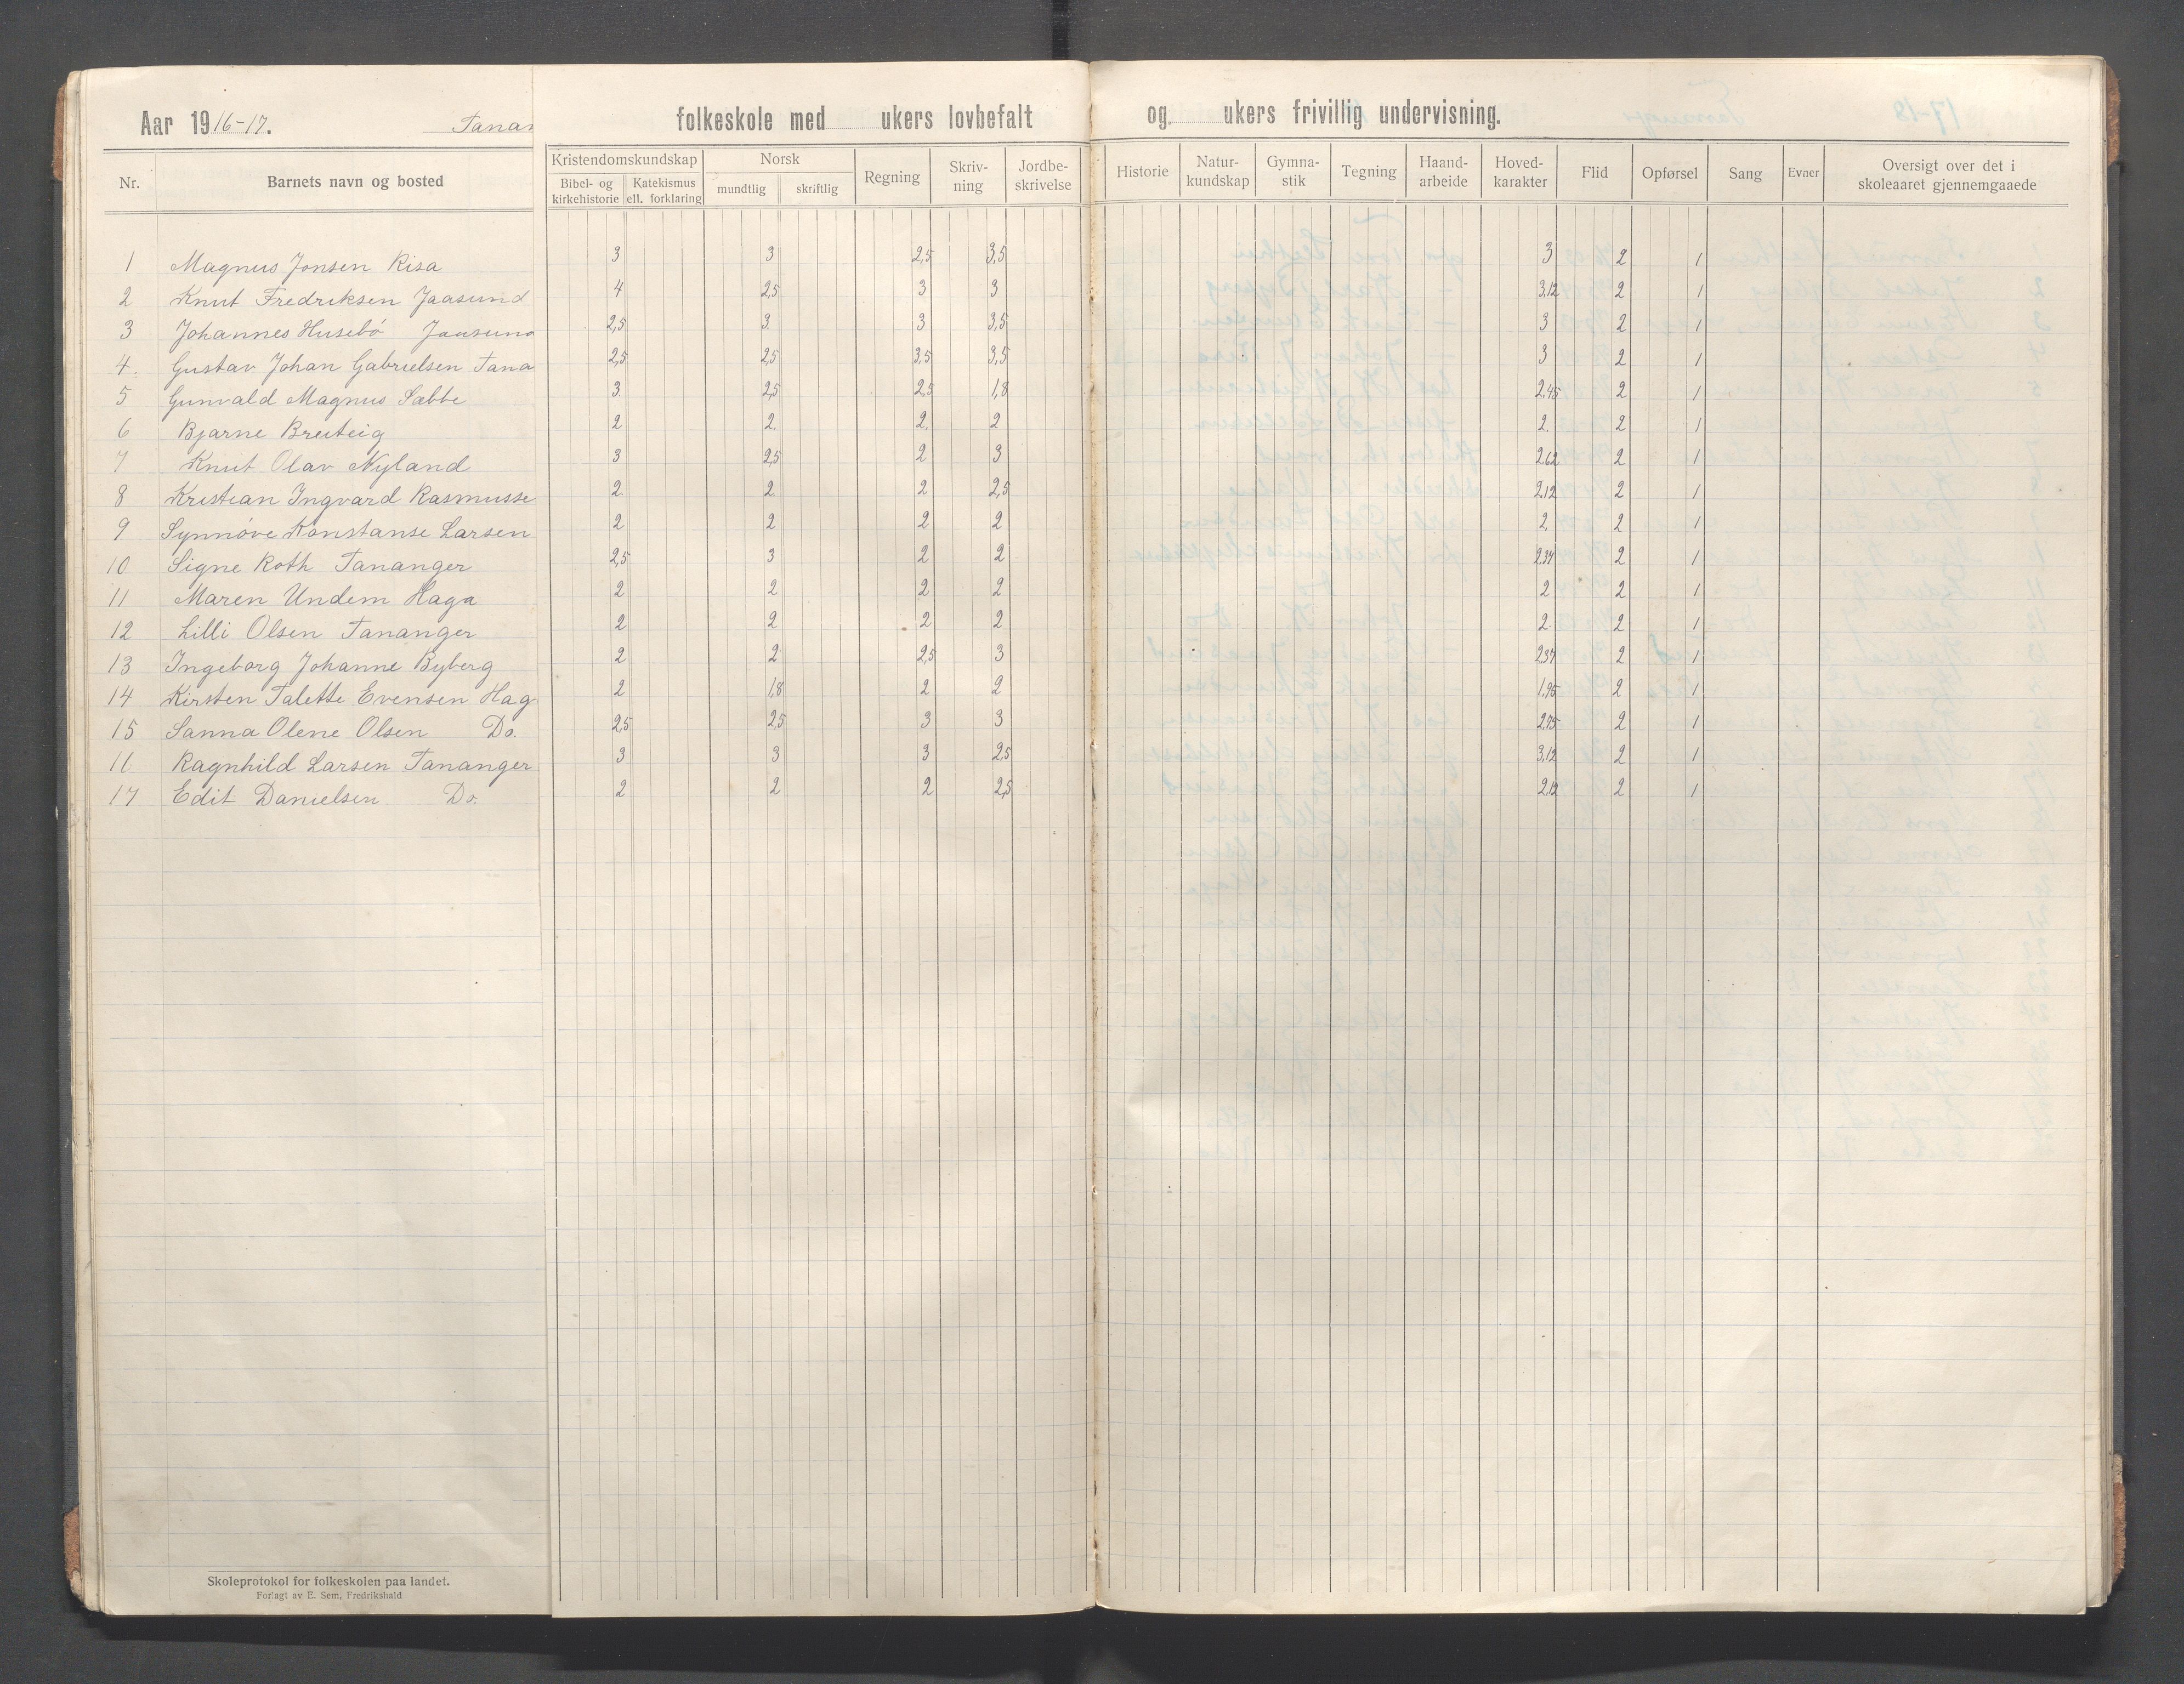 Aar 1916-17. Tanan folkeskole med ukers lovbefalt og ukers frivillig undervisning.
Nr. Barnets navn og bosted Kristendomskundskap Bibel- og kirkehistorie Katekismus ell. forklaring Norsk mundtlig skriftlig Regning Skriv-ning Jordbe-skrivelse Historie Natur-kundskap Gymna-stik Tegning Haand-arbeide Hoved-karakter Flid Opførsel Sang Evner Oversigt over det i skoleaaret gjennemgaaede
1 Magnus Jonsen Risa 3 3 2,5 3,5 3 2 1
2 Knut Fredriksen Jaasund 4 2,5 3 3 3,12 2 1
3 Johannes Husebø Jaasund 2,5 3 3 3,5 3 2 1
4. Gustav Johan Gabrielsen Tana 2,5 2,5 3,5 3,5 3 2 1
5 Gunvald Magnus Sæbbe 3 2,5 2,5 1,8 2,45 2 1
6 Bjarne Breiteig 2 2. 2. 2 2. 2 1
7 Knut Olav Nyland 3 2,5 2 3 2,62 2 1
8 Kristian Ingvard Rasmusse 2 2 2 2,5 2,12 2 1
9 Synnøve Konstanse Larsen 2 2 2 2 2. 2 1
10 Signe Roth Tananger 2,5 3 2 2 2,37 2 1
11 Maren Undem Haga 2 2 2 2 2 2 1
12 Lilli Olsen Tananger 2 2 2 2 2 2 1
13 Ingeborg Johanne Byberg 2 2 2,5 3 2,37 2 1
14 Kirsten Talette Evensen Hag 2 1,8 2 2 1,95 2 1
15 Sanna Olene Olsen Do. 2,5 2,5 3 3 2,75 2 1
11 Ragnhild Larsen Tananger 3 3 3 2,5 3,12 2 1
17 Edit Danielsen Do. 2 2 2 2,5 2,12 2 1
Skoleprotokol for folkeskolen paa landet.
Forlagt av E. Sem, Fredrikshald